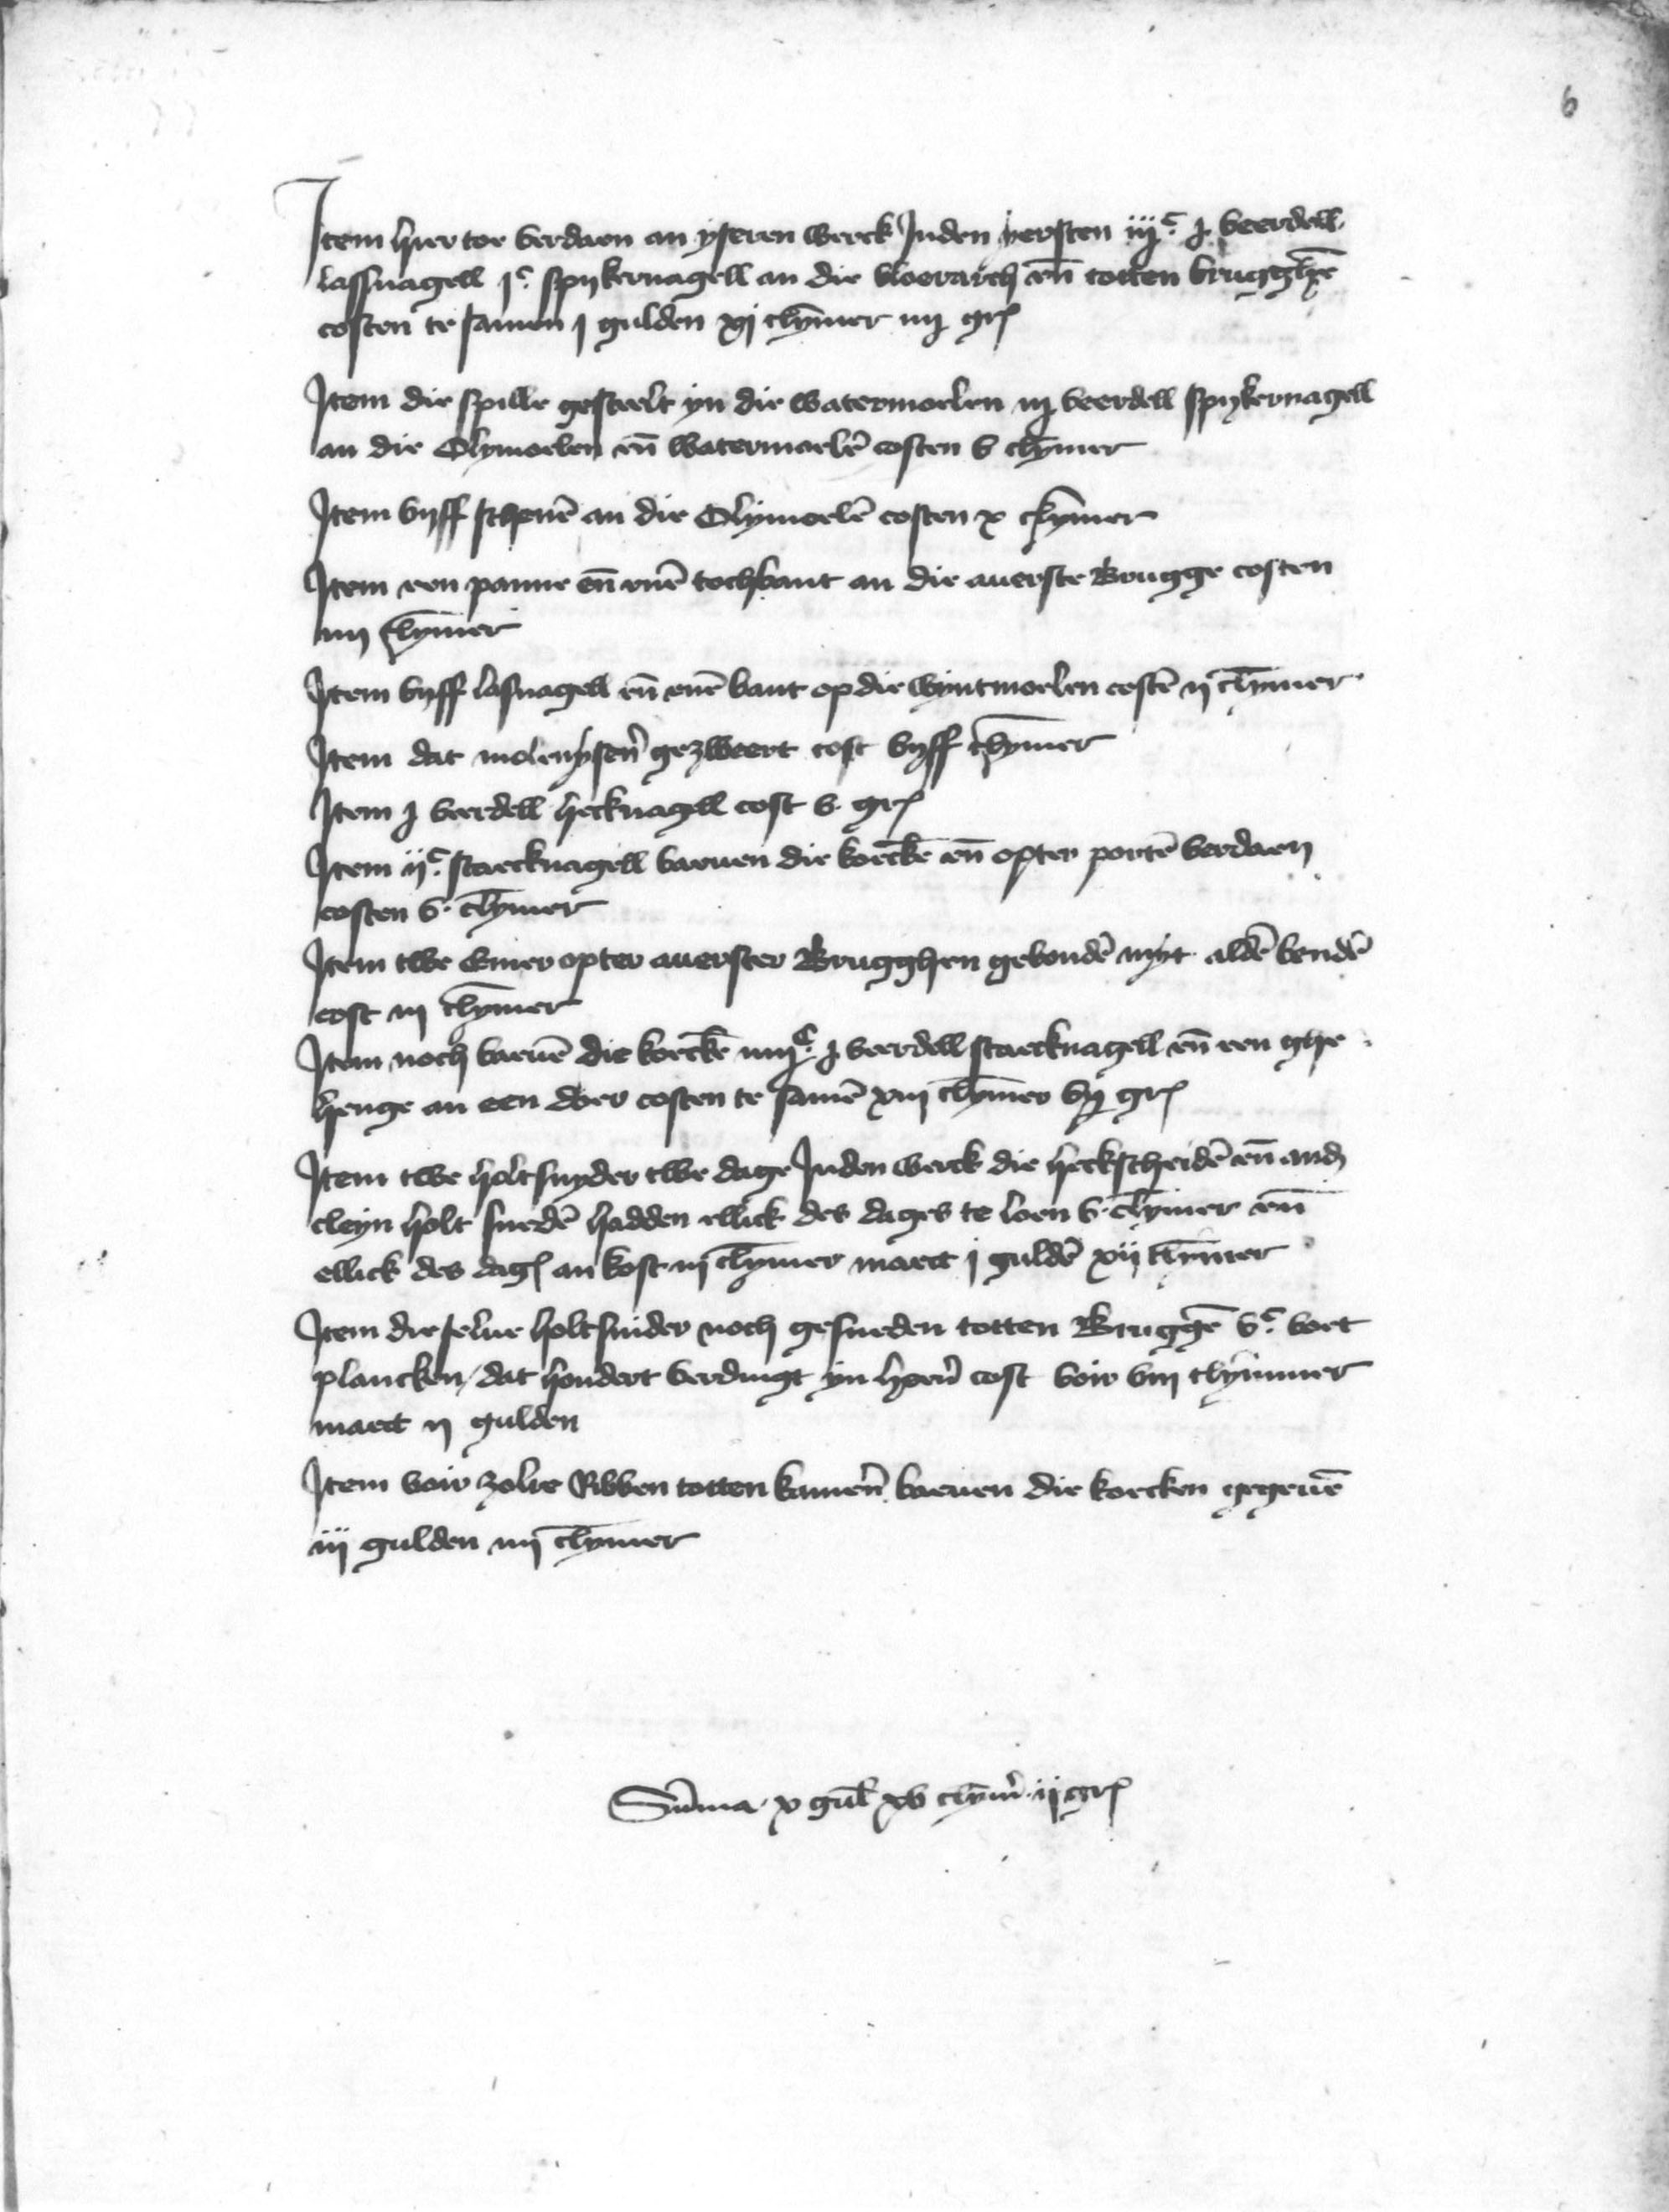 6
Item hier toe verdaen an yseren werck Inden yersten iijᶜ j veerdell
lassnagell jᶜ spykernagell an die vloerarch eñ totten brugghē
costen te samen j gulden xj clȳmer iiij gr
Item die spille gesteelt yn die watermoelen iij veerdell spykernagell
an die Olymoelen eñ watermoelē costen v clȳmer
Item vyff schenē an die Olymoelē costen x clȳmer
Item een panne eñ enē tochbant an die auerste Brugge costen
iiij clȳmer
Item vyff lasnagell eñ enē bant op die wyntmoelen costē ij clȳmer
Item dat molenysen gezweert cost vyff clȳmer
Item j veerdell hecknagell cost v gr
Item ijᶜ staecknagell baeuen die koeckē eñ opter portē verdaen
costen v clȳmer
Item twe Emer opter auerster Brugghen gebondē myt aldē bendē
cost iij clȳmer
Item noch baeuē die koeckē iiijᶜ j veerdell staecknagell eñ een ghe
henge an een doer costen te samē xiij clȳmer vij gr
Item twe holtsnyder twe dage Inden werck die heckscheidē eñ and
cleyn holt snedē hadden ellick des dages te loen v clȳmer eñ
ellick des dag an kost iij clȳmer maect j guldē xij clȳmer
Item die selue holtsnider noch gesneden totten Bruggē vᶜ voet
plancken / dat hondert verdingt yn hoern cost voir viij clymmer
maect ij gulden
Item voir zolre Ribben totten kamern baeuen die koecken gegeuē
iij gulden iiij clȳmer
Sūma x gul xv clȳm ij gr